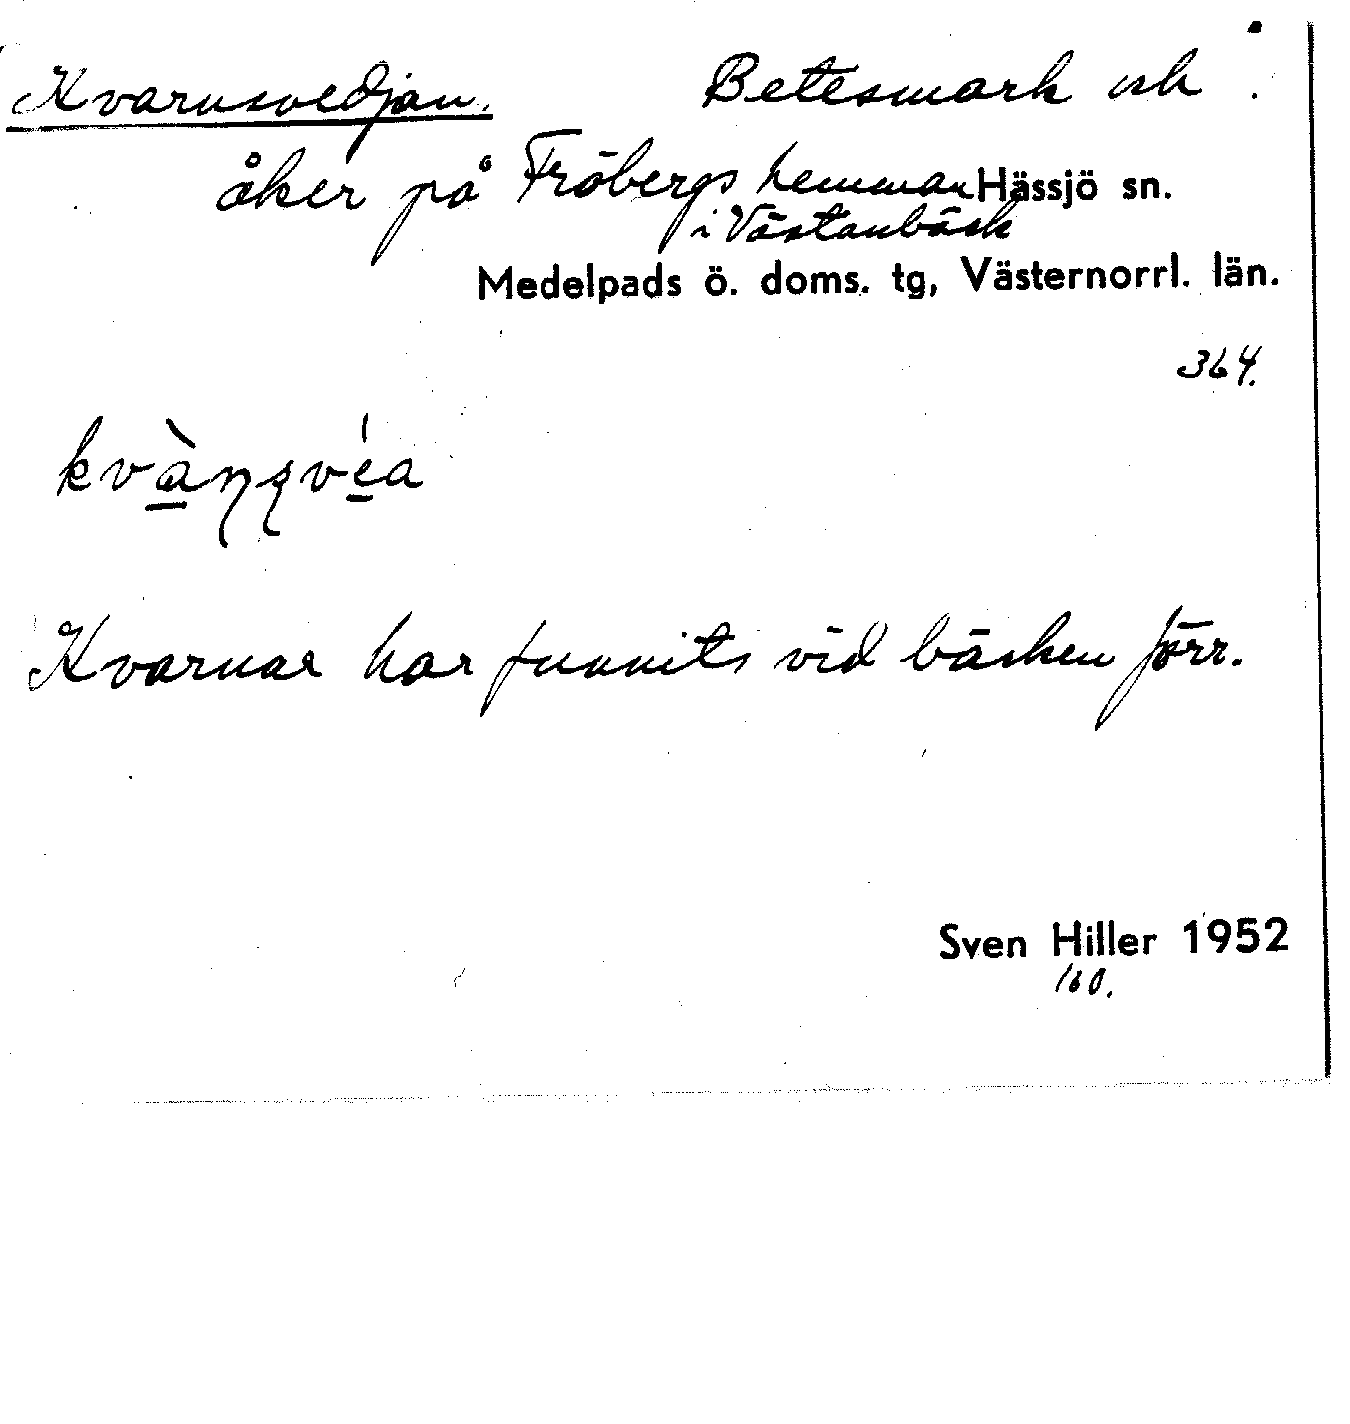 Kvarnsvedjan. Betesmark och
åker på Fröbergs hemman Hässjö sn.
i Västanbäck
Medelpads ö. doms. tg, Västernorrl. län.
364.
kvàṇṣvéa
Kvarnar har funnits vid bäcken förr.
Sven Hiller 1952
160.